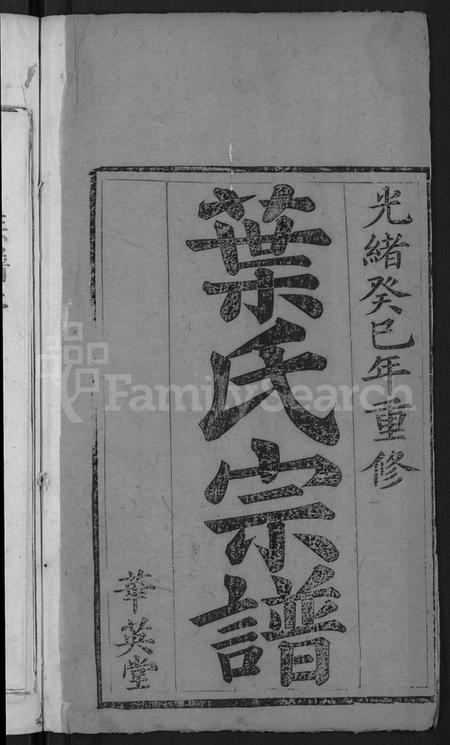 光緒癸巳年重修
葉氏宗譜
華英堂
FamilySearch